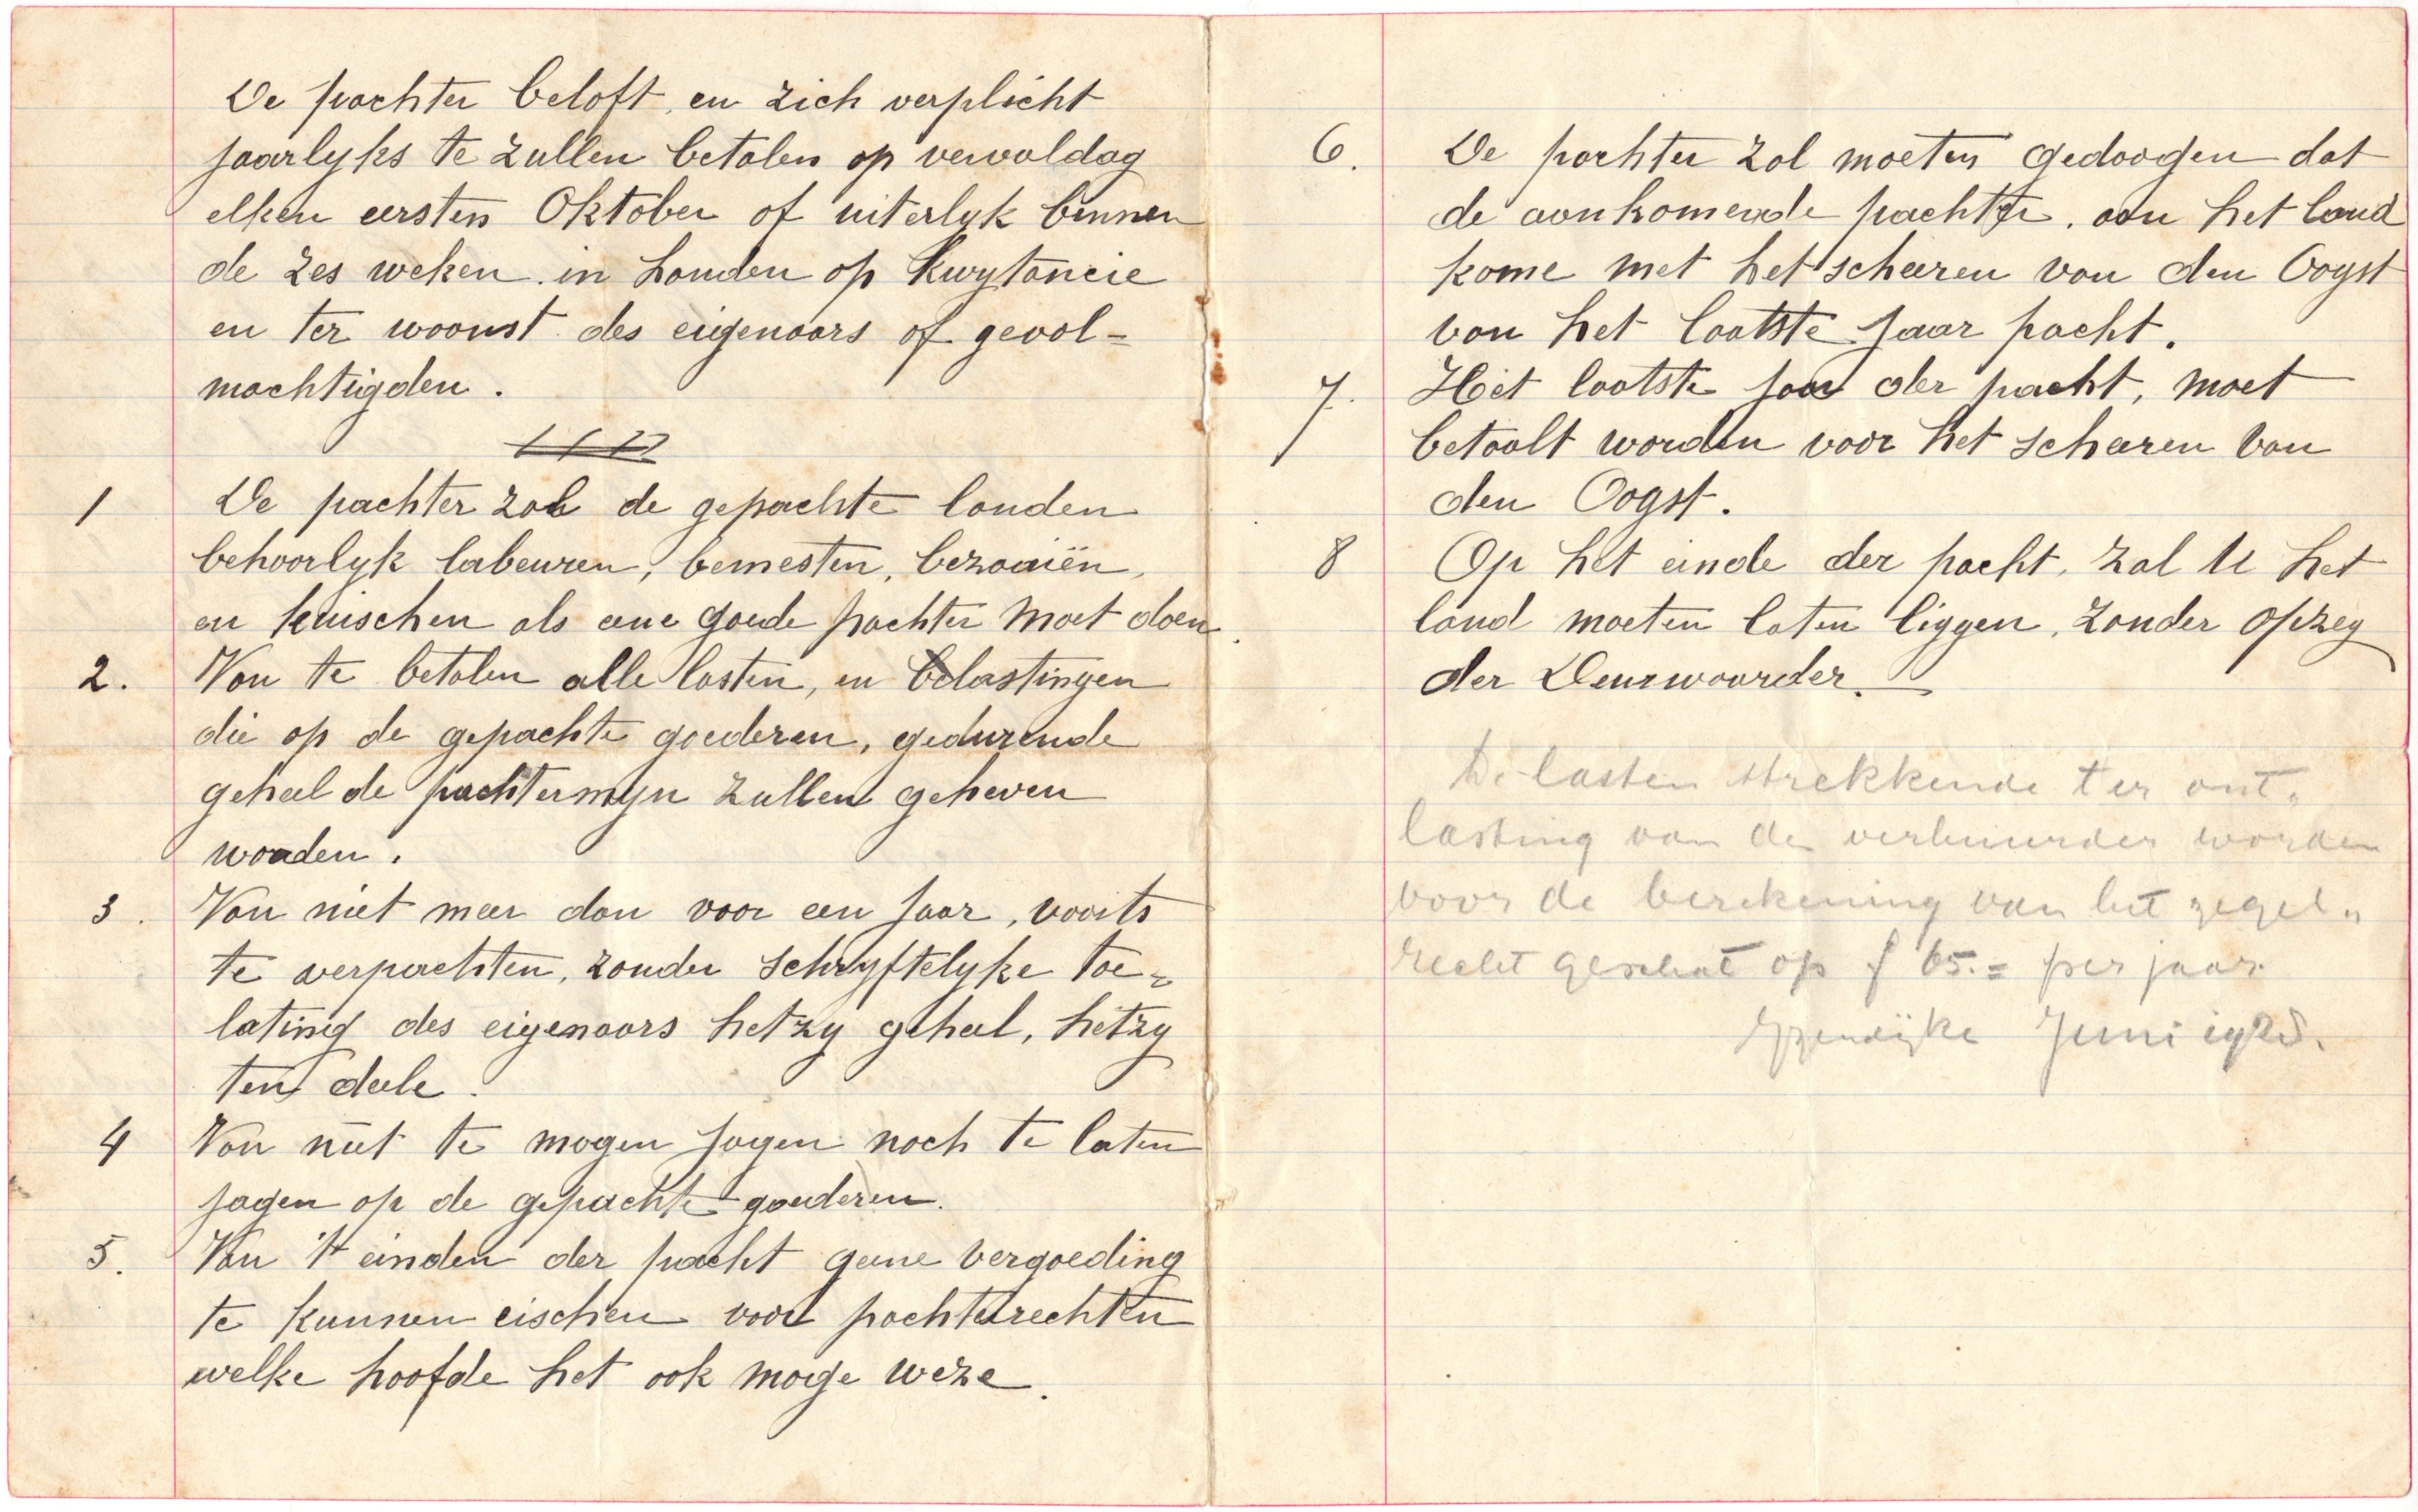 De pachter beloft, en zich verplicht
jaarlyks te zullen betalen op vervaldag
elken eersten Oktober of uiterlyk binnen
de zes weken in handen op kwytancie
en ter woonst des eigenaars of gevol-
machtigden.
1 De pachter zal de gepachte landen
behoorlyk labeuren, bemesten, bezaaiën,
en kuischen als eene goede pachter moet doen
2. Van te betalen alle lasten, en belastingen
die op de gepachte goederen, gedurende
geheel de pachtermyn zullen geheven
worden.
3. Van niet meer dan voor een Jaar, voorts
te verpachten, zonder schryftelyke toe-
lating des eigenaars hetzy geheel, hetzy
ten deele.
4 Van niet te mogen jagen noch te laten
jagen op de gepachte goederen.
5. Van 't einden der pacht geene vergoeding
te kunnen eischen voor pachtersrechten
welke hoofde het ook moge weze.
6. De pachter zal moeten gedoogen dat
de aankomende pachter, aan het land
kome met het scheeren van den Oogst
van het laatste Jaar pacht.
7. Het laatste jaar der pacht, moet
betaalt worden voor het scheeren van
den Oogst.
8 Op het einde der pacht, zal U het
land moeten laten liggen, zonder opzeg
der Deurwaarder.
De lasten strekkende ter ont-
lasting van de verhuurder worden
voor de berekening van het zegel-
recht geschat op f 65.= per jaar
Yzendijke Juni